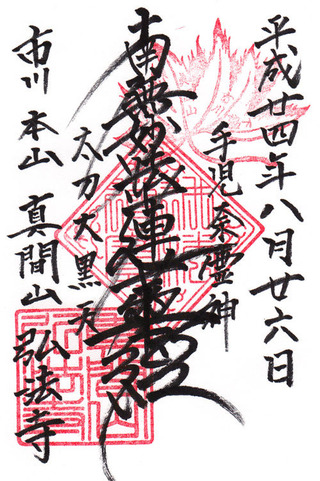 平成廿四年八月廿六日
手児奈霊神
南無妙法蓮華経
太刀大黒天
市川 本山 真間山 弘法寺